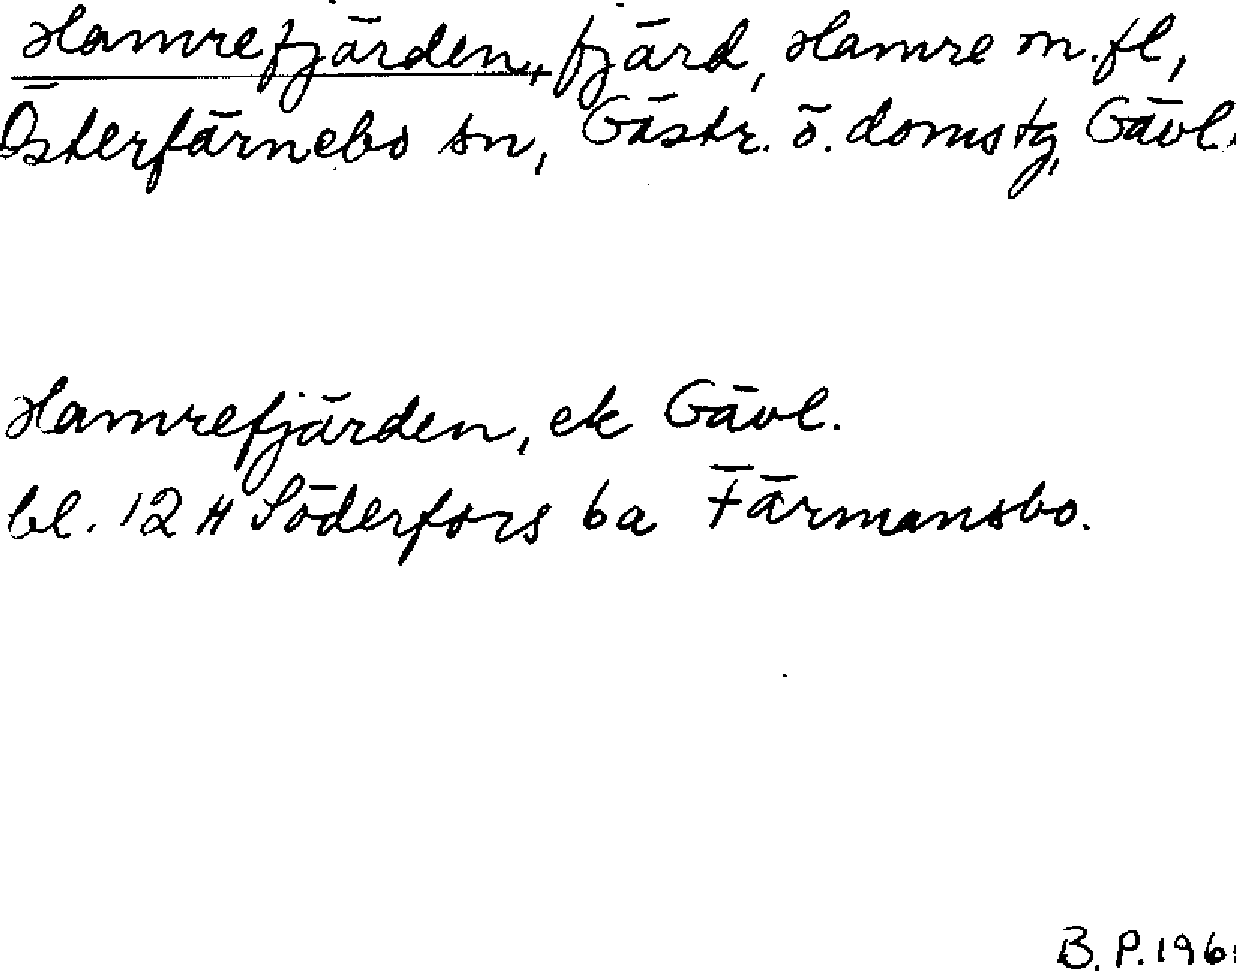 Hamrefjärden, fjärd, Hamre m.fl,
Österfärnebo sn, Gästr. ö. domstg, Gävl.
Hamrefjärden, ek Gävl.
bl. 12 H Söderfors 6a Färmansbo.
B. P. 1961